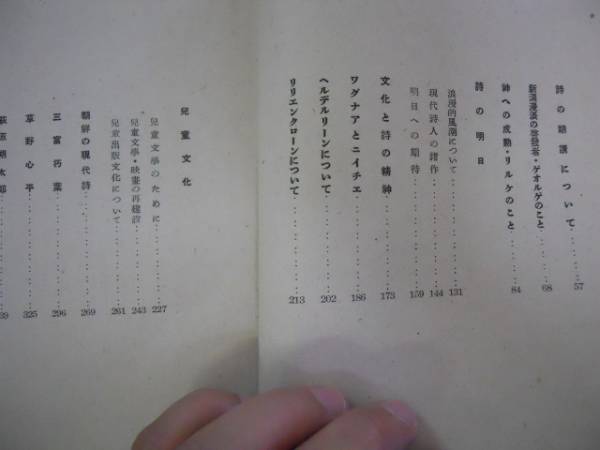 詩の話法について 57
新浪漫派の啓發者・ゲオルゲのこと 68
神への成熟・リルケのこと 84
詩の明日
浪漫的風潮について 131
現代詩人の諸作 144
明日への期待 159
文化と詩の精神 173
ワグナアとニイチエ 186
ヘルデルリーンについて 202
リリエンクローンについて 213
兒童文化
兒童文學のために 227
兒童文學・映畫の再建設 243
兒童出版文化について 261
朝鮮の現代詩 269
三富朽葉 296
草野心平 325
萩原朔太郎 39